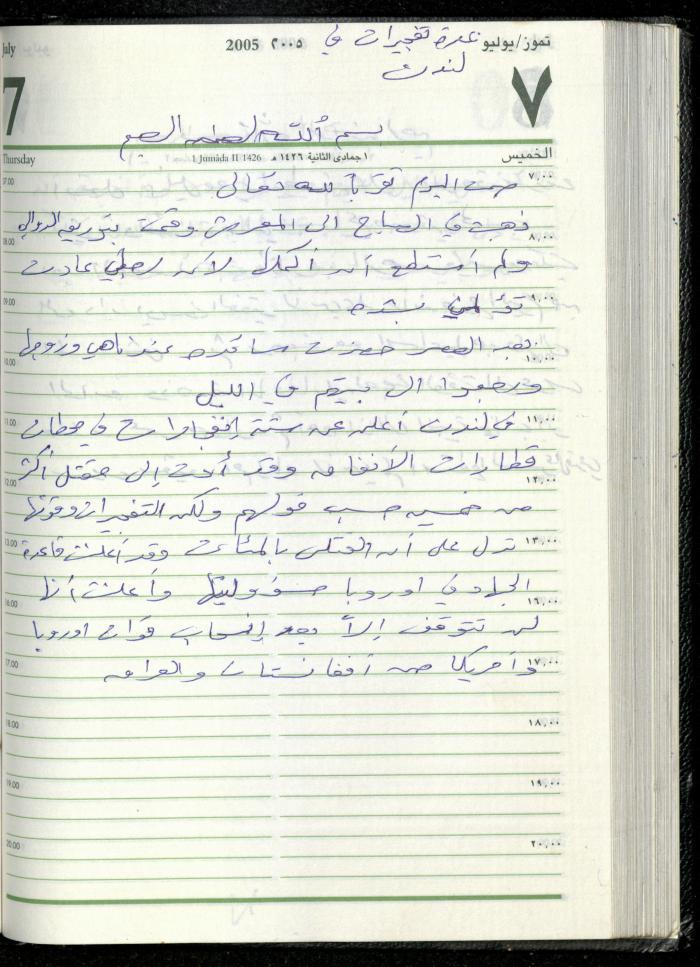 July
تموز/يوليو
عدة تفجيرات في
2005 ٢٠٠٥
لندن
7
٧
بسم الله الرحمن الرحيم
Thursday
1 Jumâda II 1426
١ جمادى الثانية ١٤٢٦ هـ
الخميس
07.00 ٧,٠٠
صمت اليوم تقرباً لله تعالى
ذهبت في الصباح الى المعرش وقمت بتوريق الدوالي
08.00 ٨,٠٠
ولم أستطع أن أكملها لأن رجلي عادت
09.00
تؤلمني بشده
بعد العصر حضرت ساجده عبد وزوجها
10.00 ١٠,٠٠
ورجعوا الى بيتهم في الليل
11.00 ١١,٠٠
في لندن أعلن عن ستة إنفجارات في محطات
قطارات الأنفاق وقد أدت إلى مقتل أكثر
12.00 ١٢,٠٠
من خمسين حسب قولهم ولكن التفجيرات وقوتها
13.00 ١٣,٠٠
تدل على أن القتلى بالمئات وقد أعلنت قاعدة
الجهاد في اوروبا مسؤوليتها وأعلنت أنها
16.00 ١٦,٠٠
لن تتوقف إلاّ بعد إنسحاب قوات اوروبا
17.00 ١٧,٠٠
وأمريكا من أفغانستان والعراق
18.00 ١٨,٠٠
19.00 ١٩,٠٠
20.00 ٢٠,٠٠